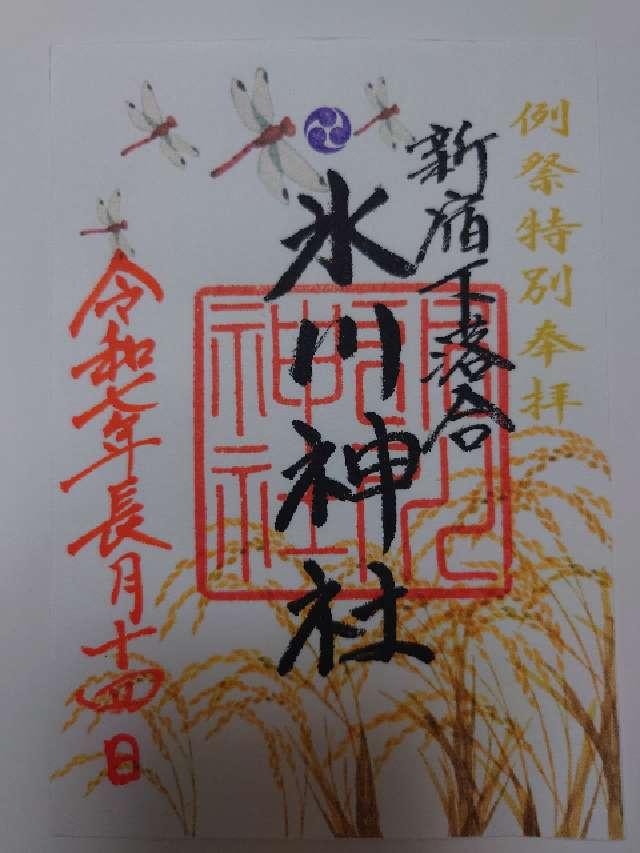 例祭特別奉拝
新宿下落合
氷川神社
令和七年長月十四日